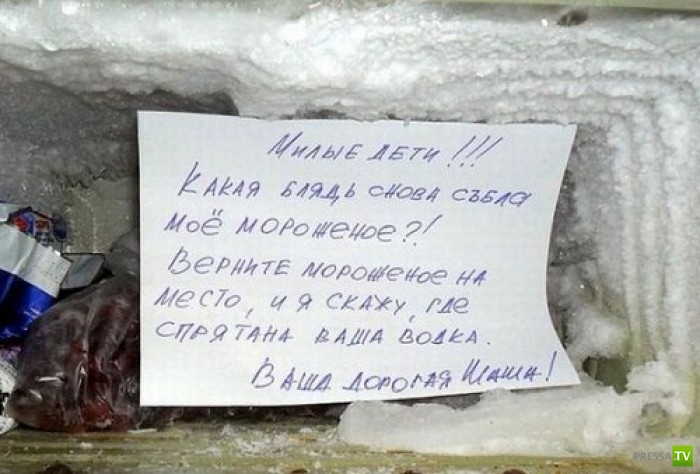 Милые дети!!!
Какая блядь снова съела
моё мороженое?!
Верните мороженое на
место, и я скажу, где
спрятана ваша водка.
Ваша дорогая Маша!
PRESSA.TV